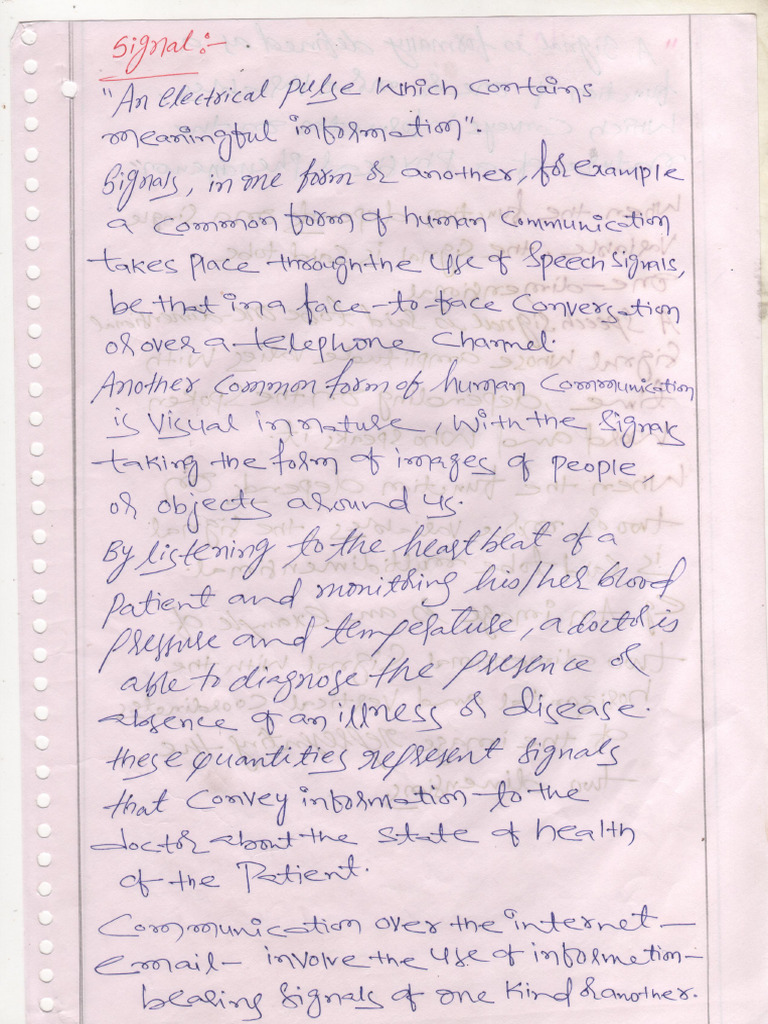 Signal:-
"An electrical pulse which contains
meaningful information".
Signals, in one form or another, for example
a common form of human communication
takes place through the use of speech signals,
be that in a face-to-face conversation
or over a telephone channel.
Another common form of human communication
is visual in nature, with the signals
taking the form of images of people
or objects around us.
By listening to the heartbeat of a
patient and monitring his/her blood
pressure and temperature, a doctor is
able to diagnose the presence or
absence of an illness or disease.
these quantities represent signals
that convey information to the
doctor about the state of health
of the patient.
Communication over the internet -
email - involve the use of information-
bearing signals of one kind or another.